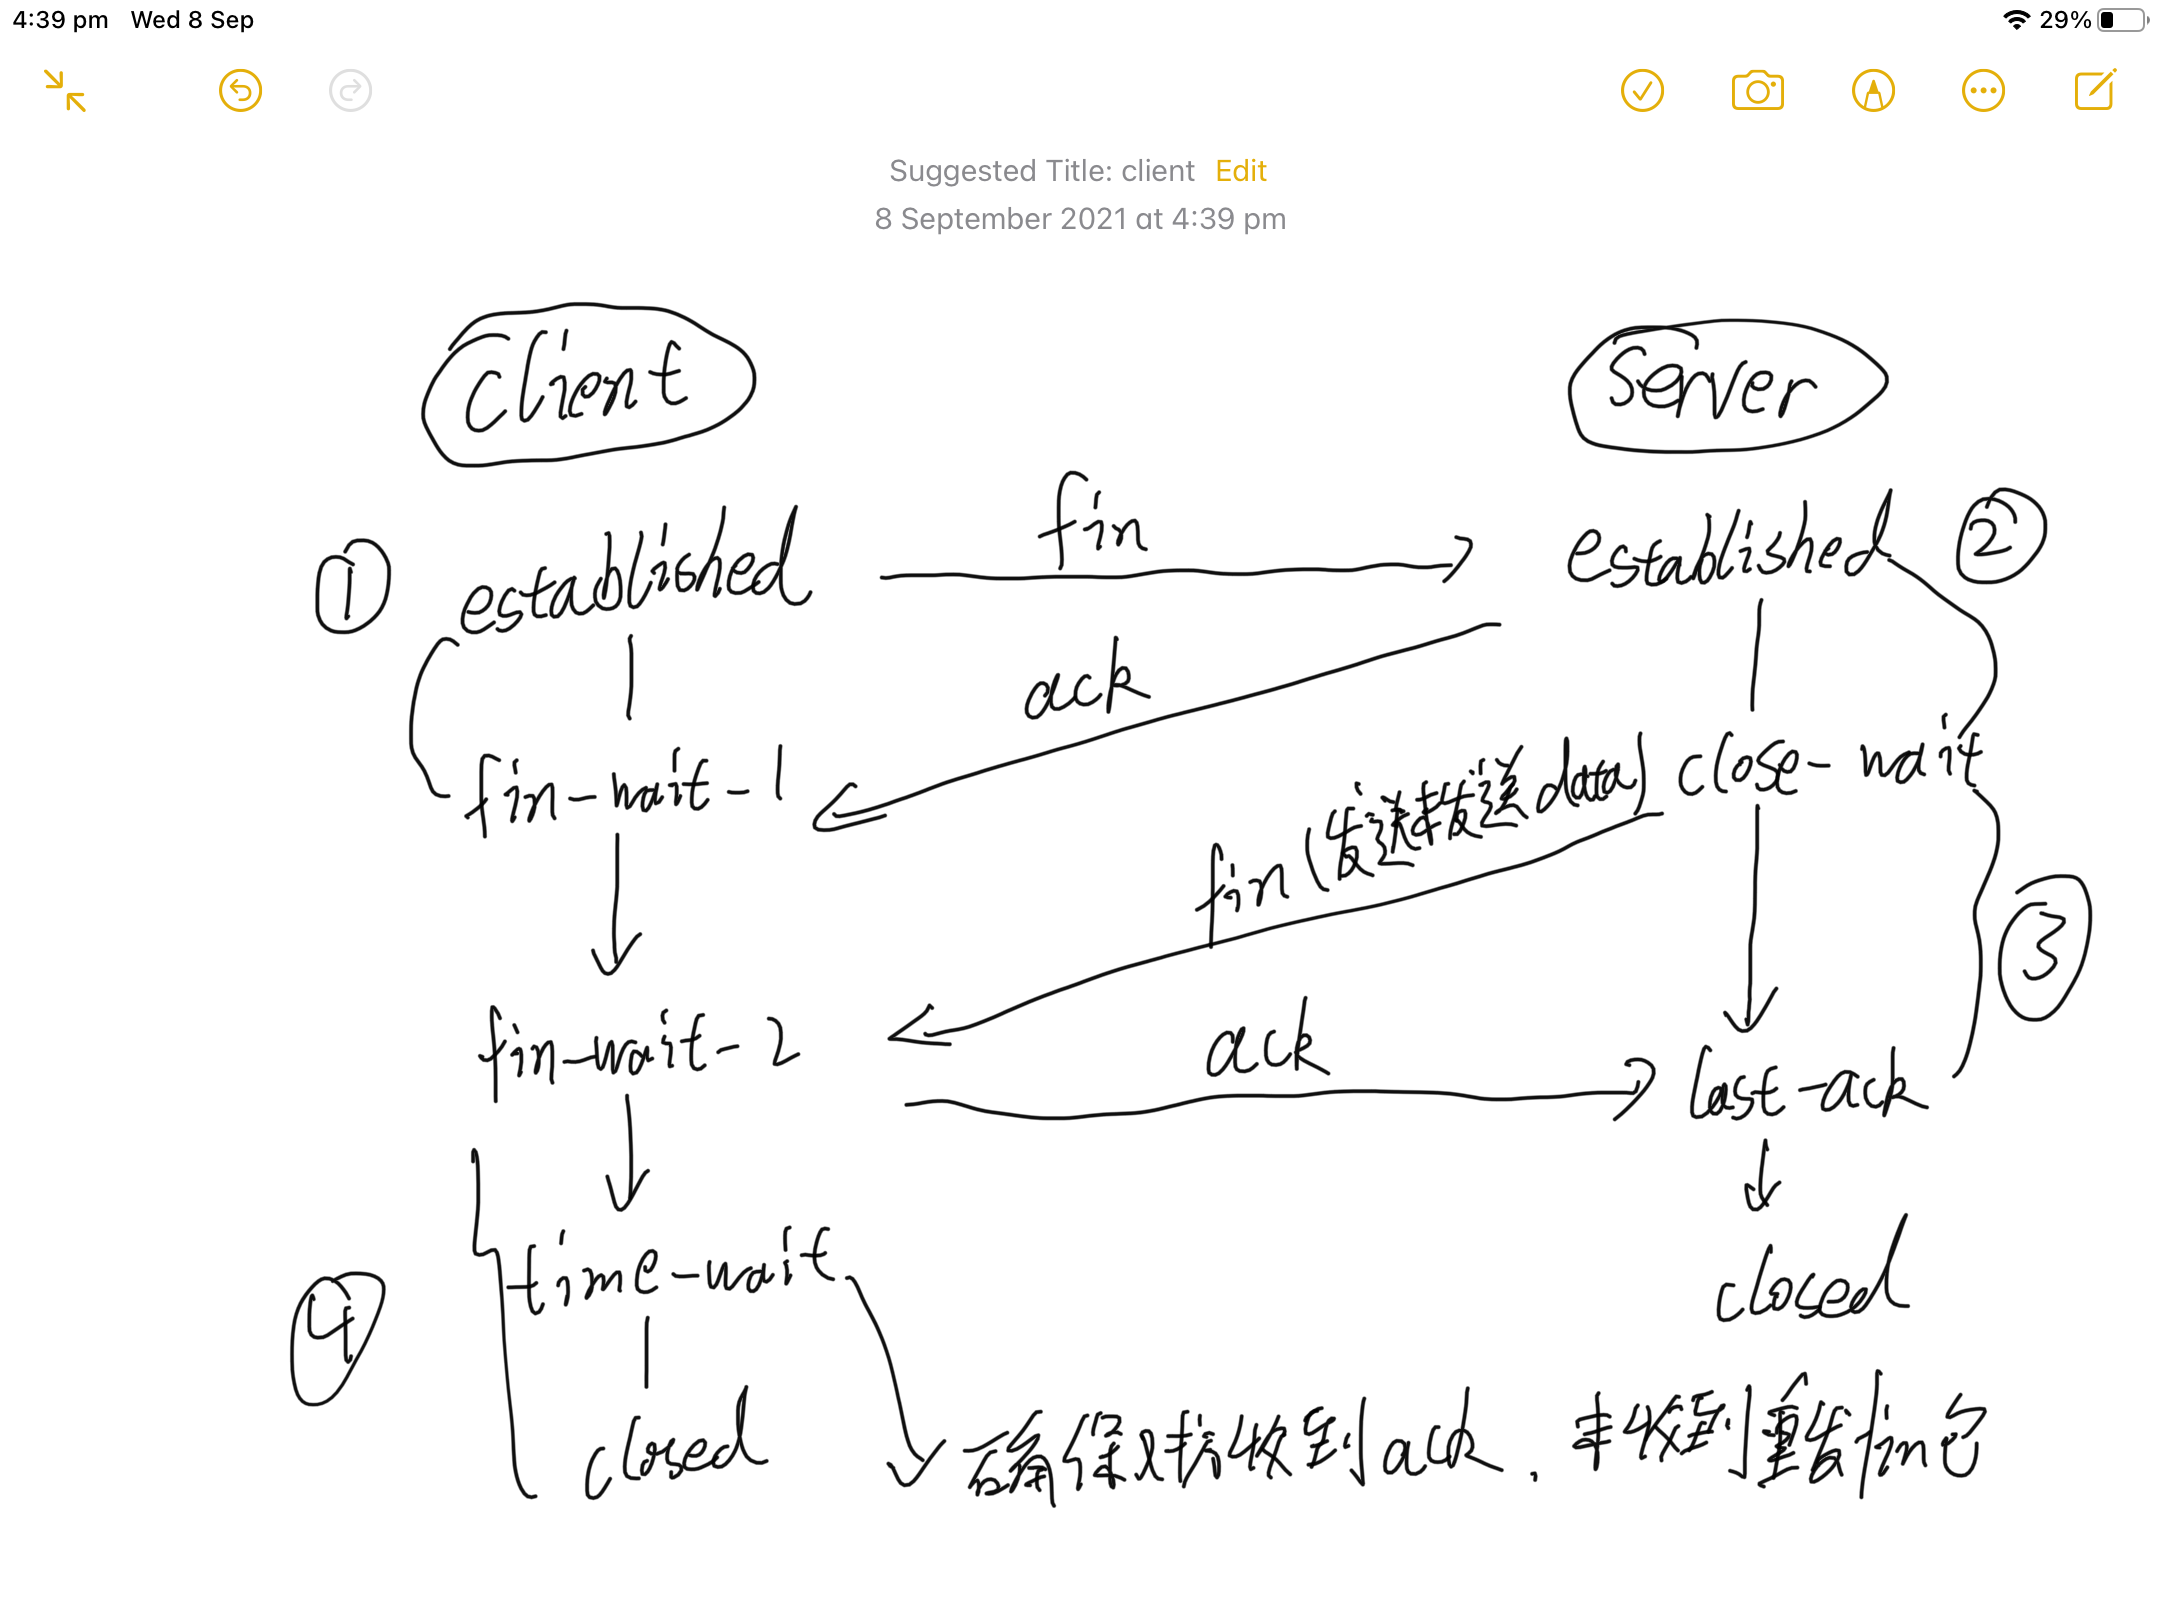 4:39 pm Wed 8 Sep 29%
Suggested Title: client Edit
8 September 2021 at 4:39 pm
Client
Server
fin
① established
established ②
ack
fin-wait-1
close-wait
fin (发送未发送data)
③
fin-wait-2
ack
last-ack
time-wait
closed
④
closed
确保对方收到ack. 未收到重发fin包